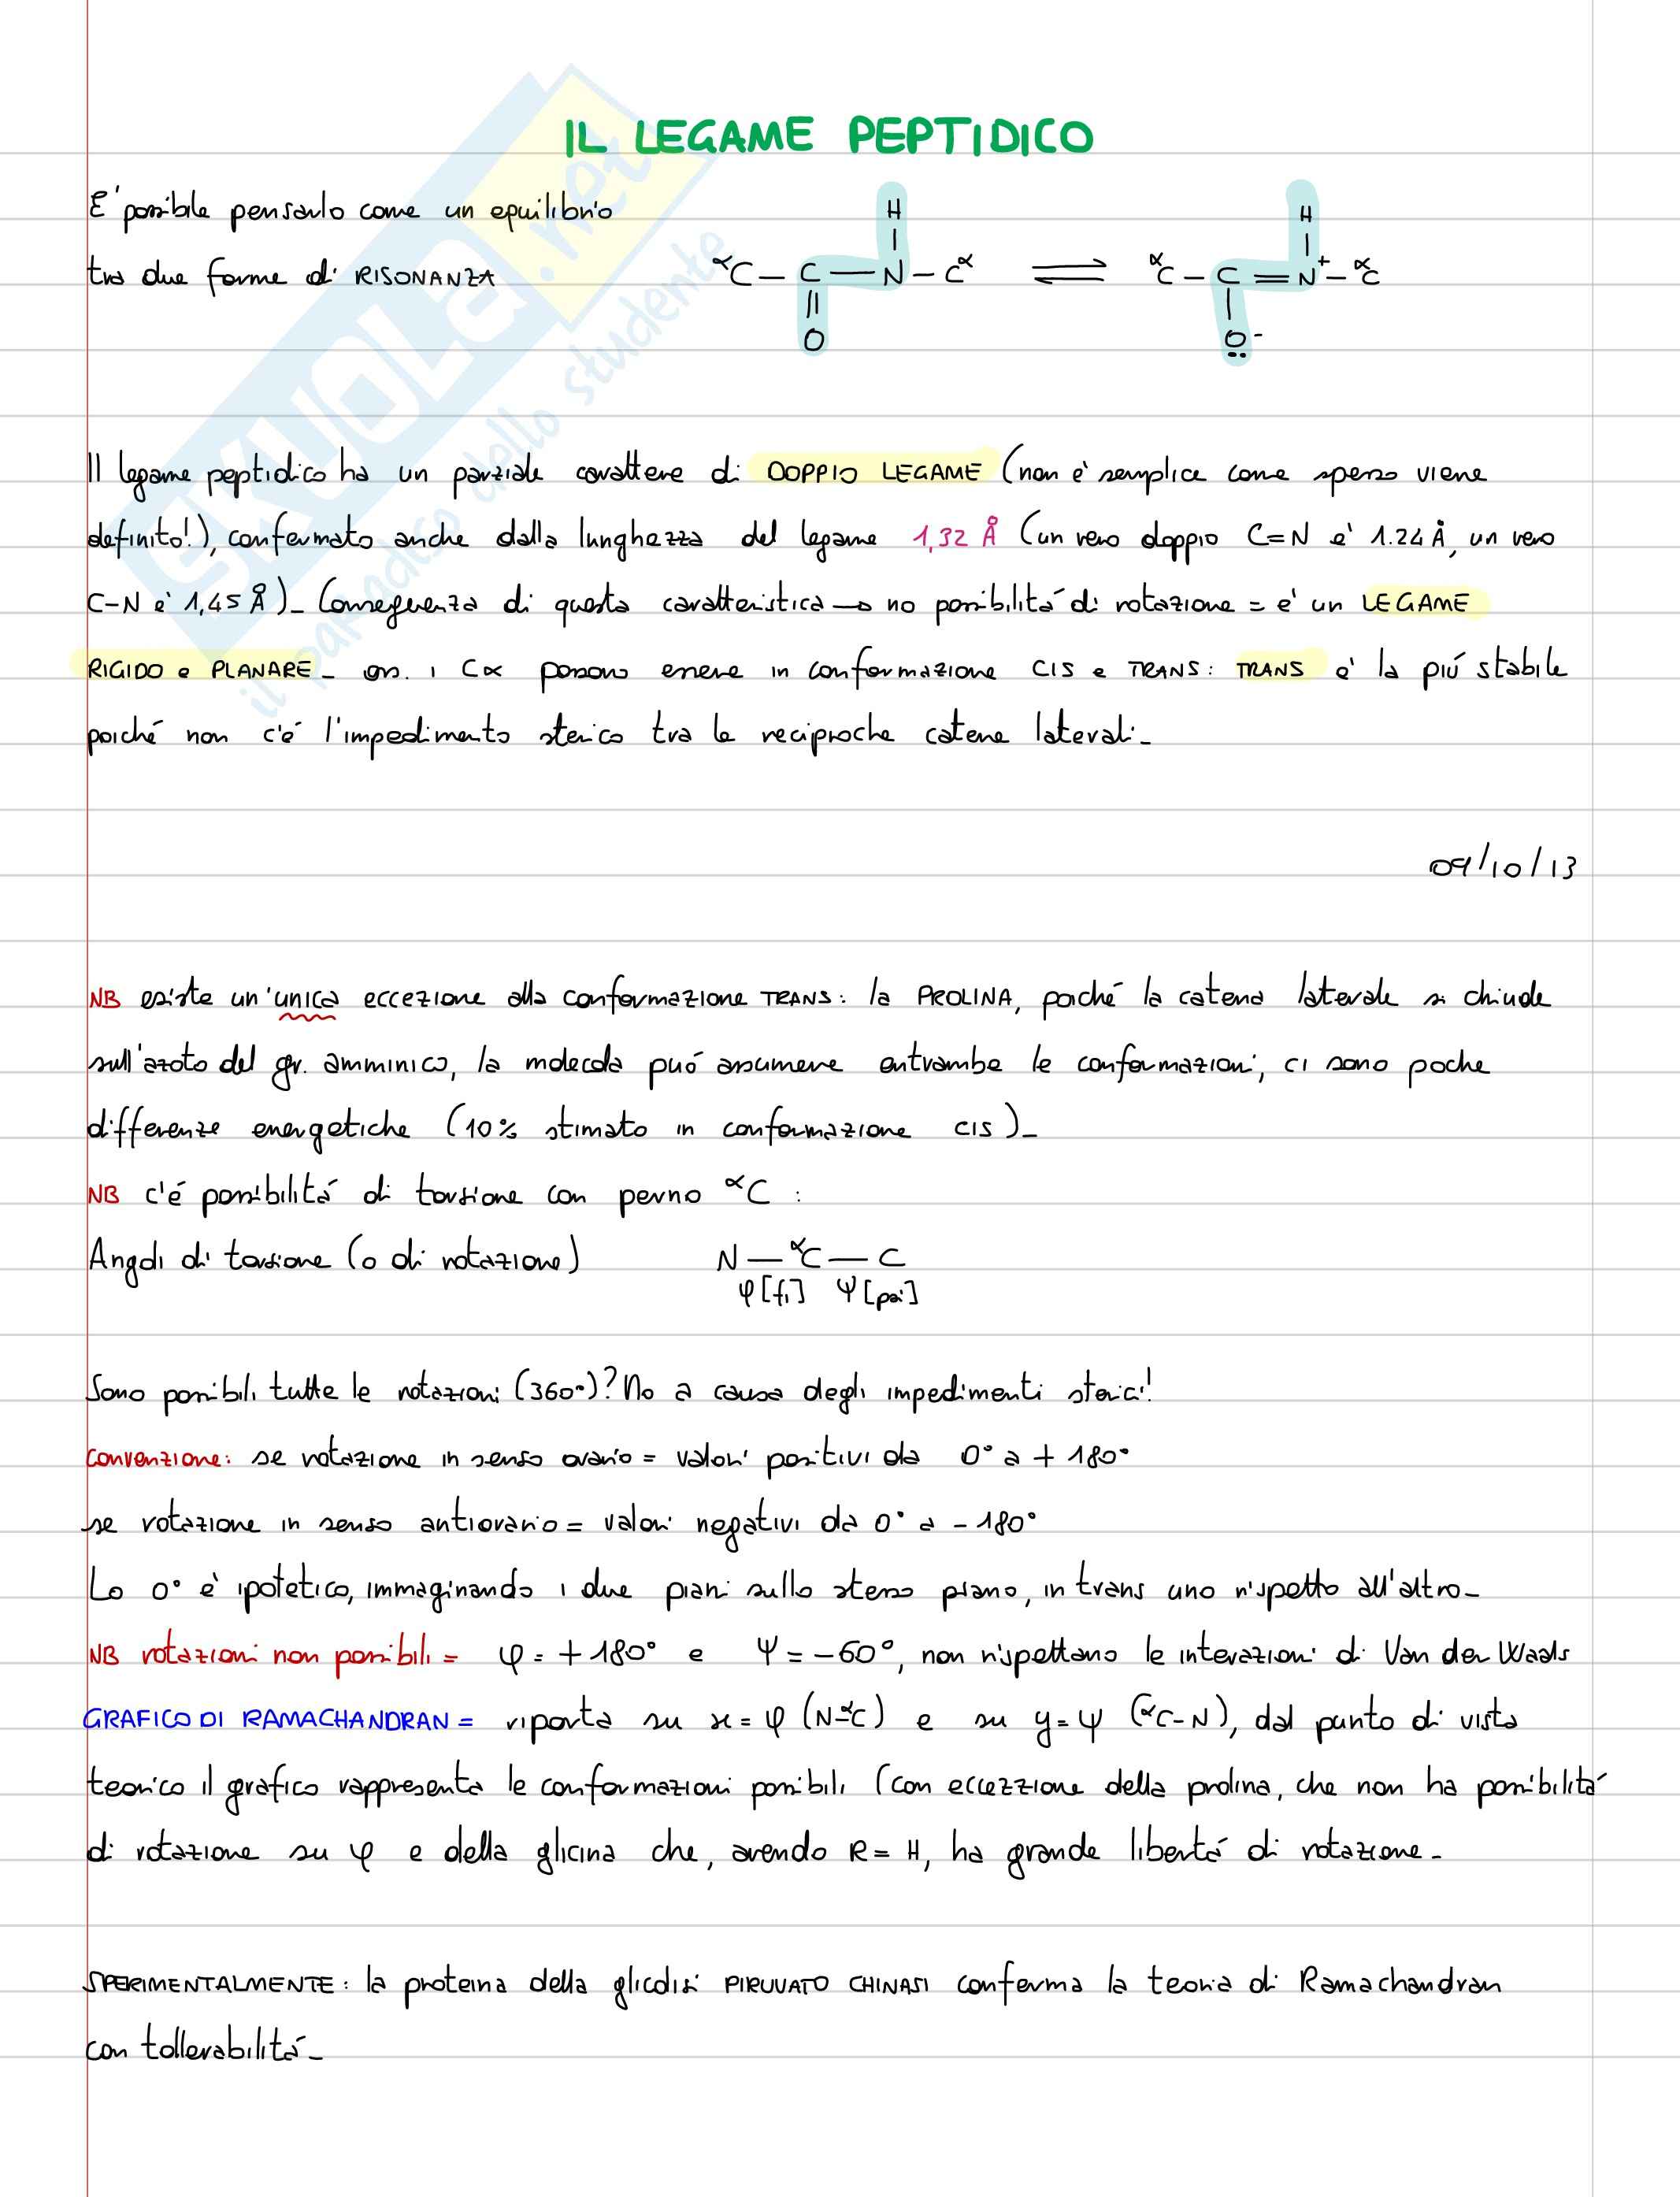 IL LEGAME PEPTIDICO
E' possibile pensarlo come un equilibrio
tra due forme di RISONANZA
H H
αC – C — N – Cα ⇌ αC – C = N⁺ – αC
O O⁻
Il legame peptidico ha un parziale carattere di DOPPIO LEGAME (non è semplice come spesso viene
definito!), confermato anche dalla lunghezza del legame 1,32 Å (un vero doppio C=N è 1.24 Å, un vero
C-N è 1,45 Å)_ Conseguenza di questa caratteristica → no possibilitá di rotazione = e' un LEGAME
RIGIDO e PLANARE_ oss. i Cα possono essere in conformazione CIS e TRANS: TRANS è la piú stabile
poiché non c'é l'impedimento sterico tra le reciproche catene laterali_
09/10/13
NB esiste un'unica eccezione alla conformazione TRANS: la PROLINA, poiché la catena laterale si chiude
sull'azoto del gr. amminico, la molecola puó assumere entrambe le conformazioni, ci sono poche
differenze energetiche (10% stimato in conformazione CIS)_
NB c'é possibilitá di torsione con perno αC :
Angoli di torsione (o di rotazione) N — αC — C
φ [fi] ψ [psi]
Sono possibili tutte le rotazioni (360°)? No a causa degli impedimenti sterici!
Convenzione: se rotazione in senso orario = valori positivi da 0° a + 180°
se rotazione in senso antiorario = valori negativi da 0° a - 180°
Lo 0° è ipotetico, immaginando i due piani sullo stesso piano, in trans uno rispetto all'altro_
NB rotazioni non possibili = φ = + 180° e ψ = - 60°, non rispettano le interazioni di Van der Waals
GRAFICO DI RAMACHANDRAN = riporta su x = φ (N-αC) e su y = ψ (αC-N), dal punto di vista
teorico il grafico rappresenta le conformazioni possibili (con eccezzione della prolina, che non ha possibilitá
di rotazione su φ e della glicina che, avendo R = H, ha grande libertá di rotazione_
SPERIMENTALMENTE: la proteina della glicolisi PIRUVATO CHINASI conferma la teoria di Ramachandran
con tollerabilitá_
SKUOLA.net
il paradiso dello studente